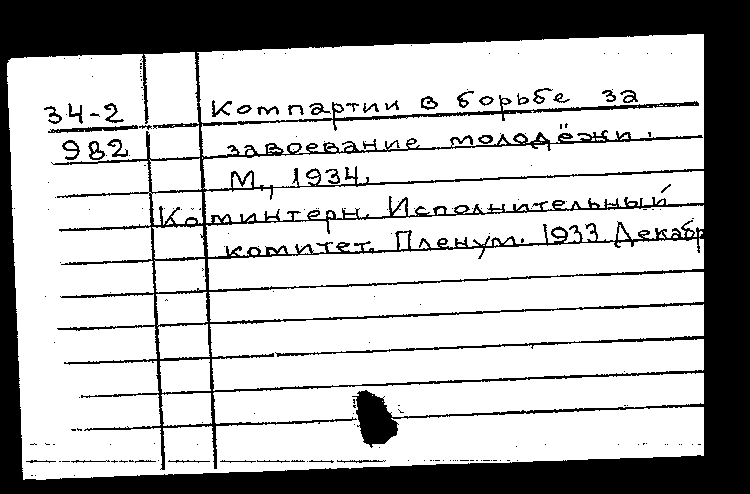 34-2 Компартии в борьбе за
982 завоевание молодёжи.
М., 1934.
Коминтерн. Исполнительный
комитет. Пленум. 1933 Декабр